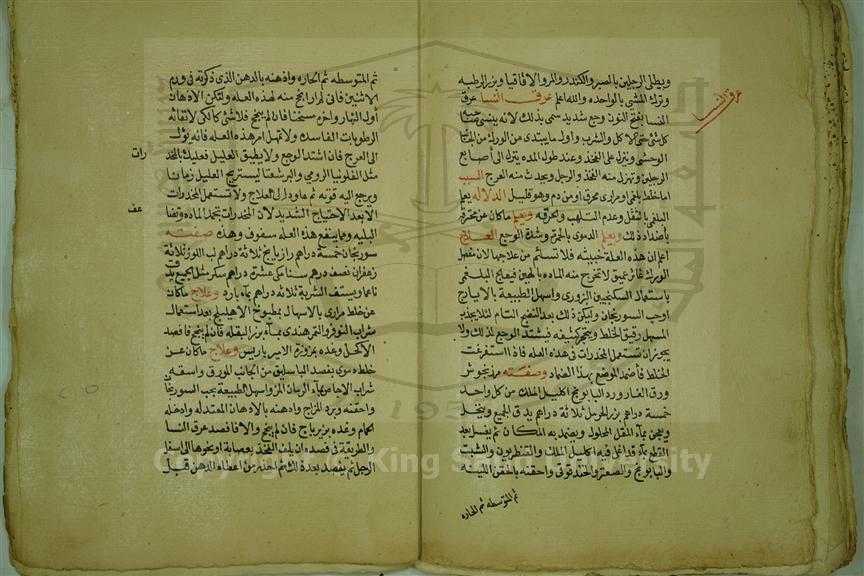 ويطلى الرجلين بالصبر والكندر والمر والاقاقيا وبزر الرطبه
وترك المشى بالواحده والله اعلم عرق النسا عرق
النسا بفتح النون وجع شديد سمى بذلك لانه ينسى صاحبه
كل شئ حتى الاكل والشرب واوله ما يبتدى من الورك من الجانب
الوحشى وينزل على الفخذ وعند طول المده ينزل الى اصابع
الرجلين وتهزل منه الفخذ والرجل ويحدث منه العرج السبب
اما خلط بلغمى او مرارى محرق او من دم وهو قليل الدلاله يعلم
البلغمى بالثقل وعدم التلهب والحرقه ويعلم ماكان عن محترق
باضداد ذلك ويعلم الدموى بالحمرة وشدة الوجع العلاج
اعلم ان هذه العلة خبيثه فلا تستلم من علاجها لان مفصل
الورك غائر عميق لا تخرج منه الماده بالهين فيعالج البلغمى
باستعمال السكنجبين البزورى واسهل الطبيعة بالايارج
اوحب السورنجان وليكن ذلك بعد النضج التام لئلا يجذب
المسهل رقيق الخلط ويتحجر كثيفه فيشتد الوجع لذلك ولا
يجوز ان تستعمل المخدرات فى هذه العله فاذا استفرغت
الخلط فاضمد الموضع بهذا الضماد وصفته مرزنجوش
ورق الغار ورد البابونج اكليل الملك من كل واحد
خمسة دراهم بزر الحرمل ثلاثة دراهم يدق الجميع وينخل
ويعجن بمآء المقل المحلول ويضمد به المكان ثم يغسل بعد
القطع بمآء قد اغلى فيه اكليل الملك والقنطريون والشبت
والبابونج والصعتر والحندقوقى واحقنه بالحقن اللينه
ثم المتوسطه ثم الحاره
عرق النسا
ثم المتوسطه ثم الحاره وادهنه بالدهن الذى ذكرته فى ورم
الانثيين فانى لم ار انجح منه لهذه العله ولتكن الادهان
اول النهار واخره مسخنا فان لم ينجح فلاشئ كالكى لافنائه
الرطوبات الفاسده ولا تهمل امر هذه العله فانه يؤل
الى العرج فان اشتد الوجع ولا يطيق العليل فعليك بالمخد
رات
مثل الفلونيا الرومى والبرشعثا ليستريح العليل زمانا
ويرجع اليه قوته ثم عاوده الى العلاج ولا تستعمل المخدرات
الا بعد الاحتياج الشديد لان المخدرات تجمد الماده وتضا
عف
البليه ومما ينفع هذه العله سفوف وهذه صفته
سورنجان خمسة دراهم رازيانج ثلاثة دراهم لب اللوز ثلاثة
زعفران نصف درهم سنا مكى عشرة دراهم سكر مثل الجميع يدق
ناعما ويستف الشربة ثلاثه دراهم بمآء بارد وعلاج ماكان
عن خلط مرارى بالاسهال بمطبوخ الاهليلج بعد استعمال
شراب النوفر والتمرهندى بمآء بزر البقله فان لم ينجح فافصد
الاكحل وغده بمزورة الامير باريس وعلاج ماكان عن
خلط دموى بفصد الباسليق من الجانب المورق واسقه
شراب الاجاص بمآء الرمان المز واسهل الطبيعة بحب السورنجان
واحقنه وبرد المزاج وادهنه بالادهان المعتدله وادخله
الحمام وغده بزيرباج فان لم ينجح والا فافصد عرق النسا
والطريقة فى فصده ان يلف الفخذ بعصابة او نحوها الى اسفل
الرجل ثم يفصد بعد ذلك ثم احذر من اعطاء الدهن قبل
Copyright © King Saud University